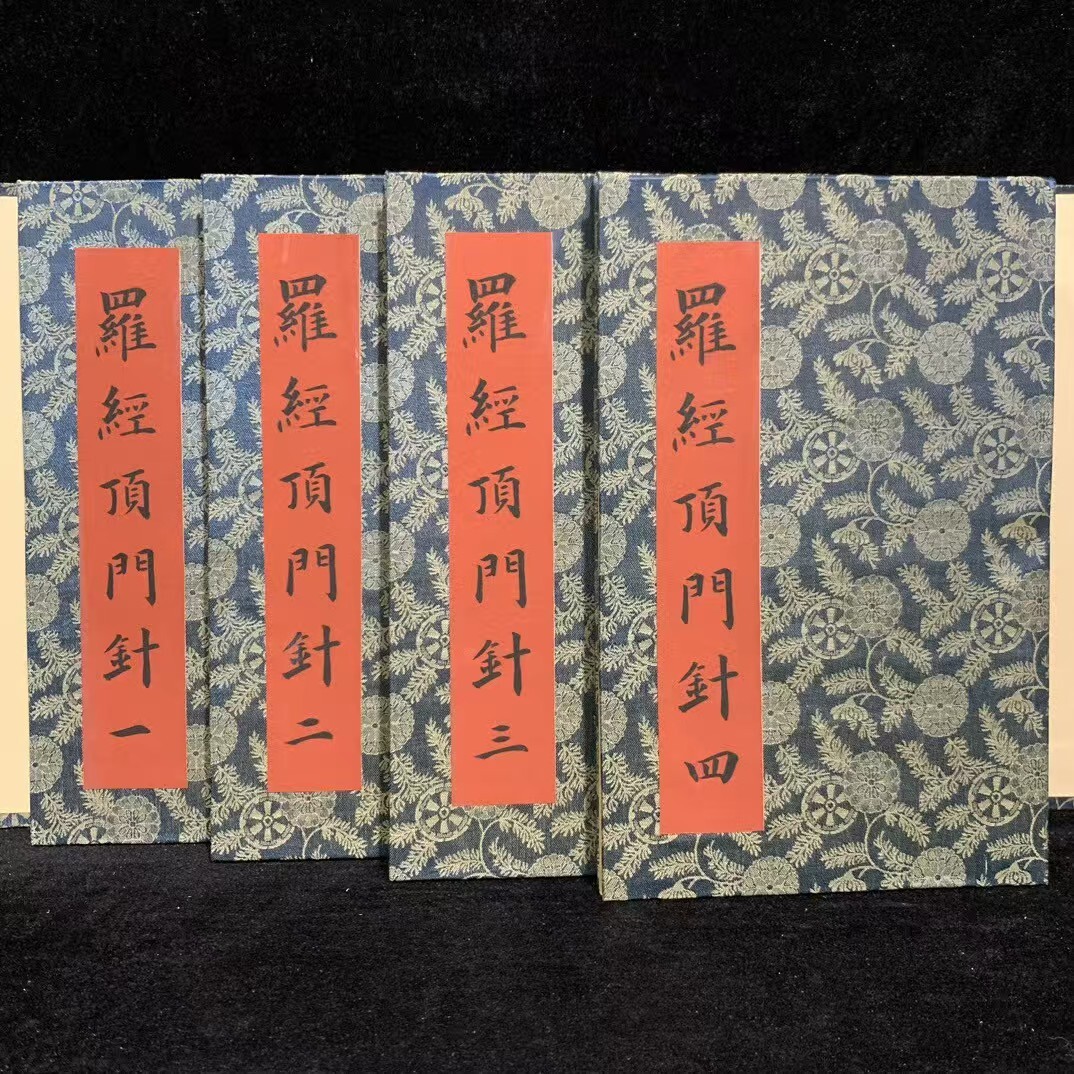 羅經頂門針一
羅經頂門針二
羅經頂門針三
羅經頂門針四